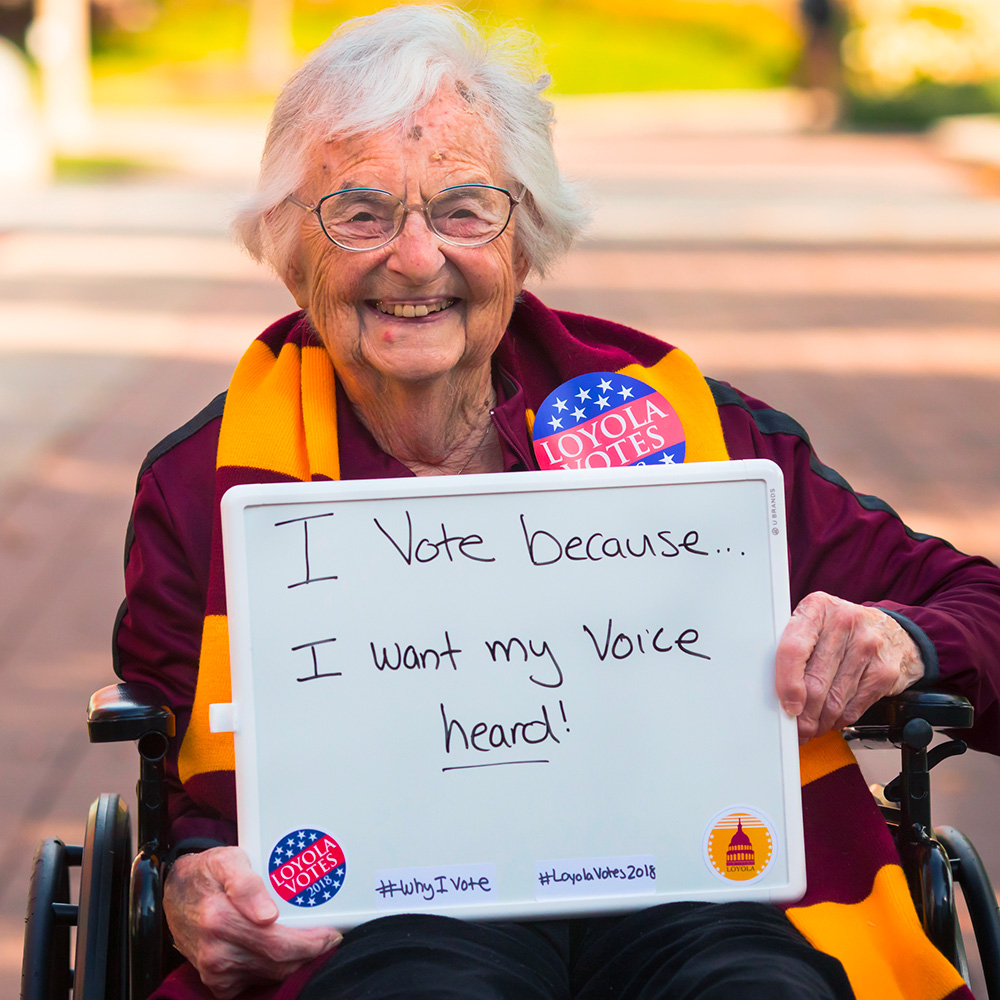 LOYOLA
VOTES
U BRANDS
I Vote because...
I want my Voice
heard!
LOYOLA
VOTES
2018
#WhyIVote
#LoyolaVotes2018
LOYOLA